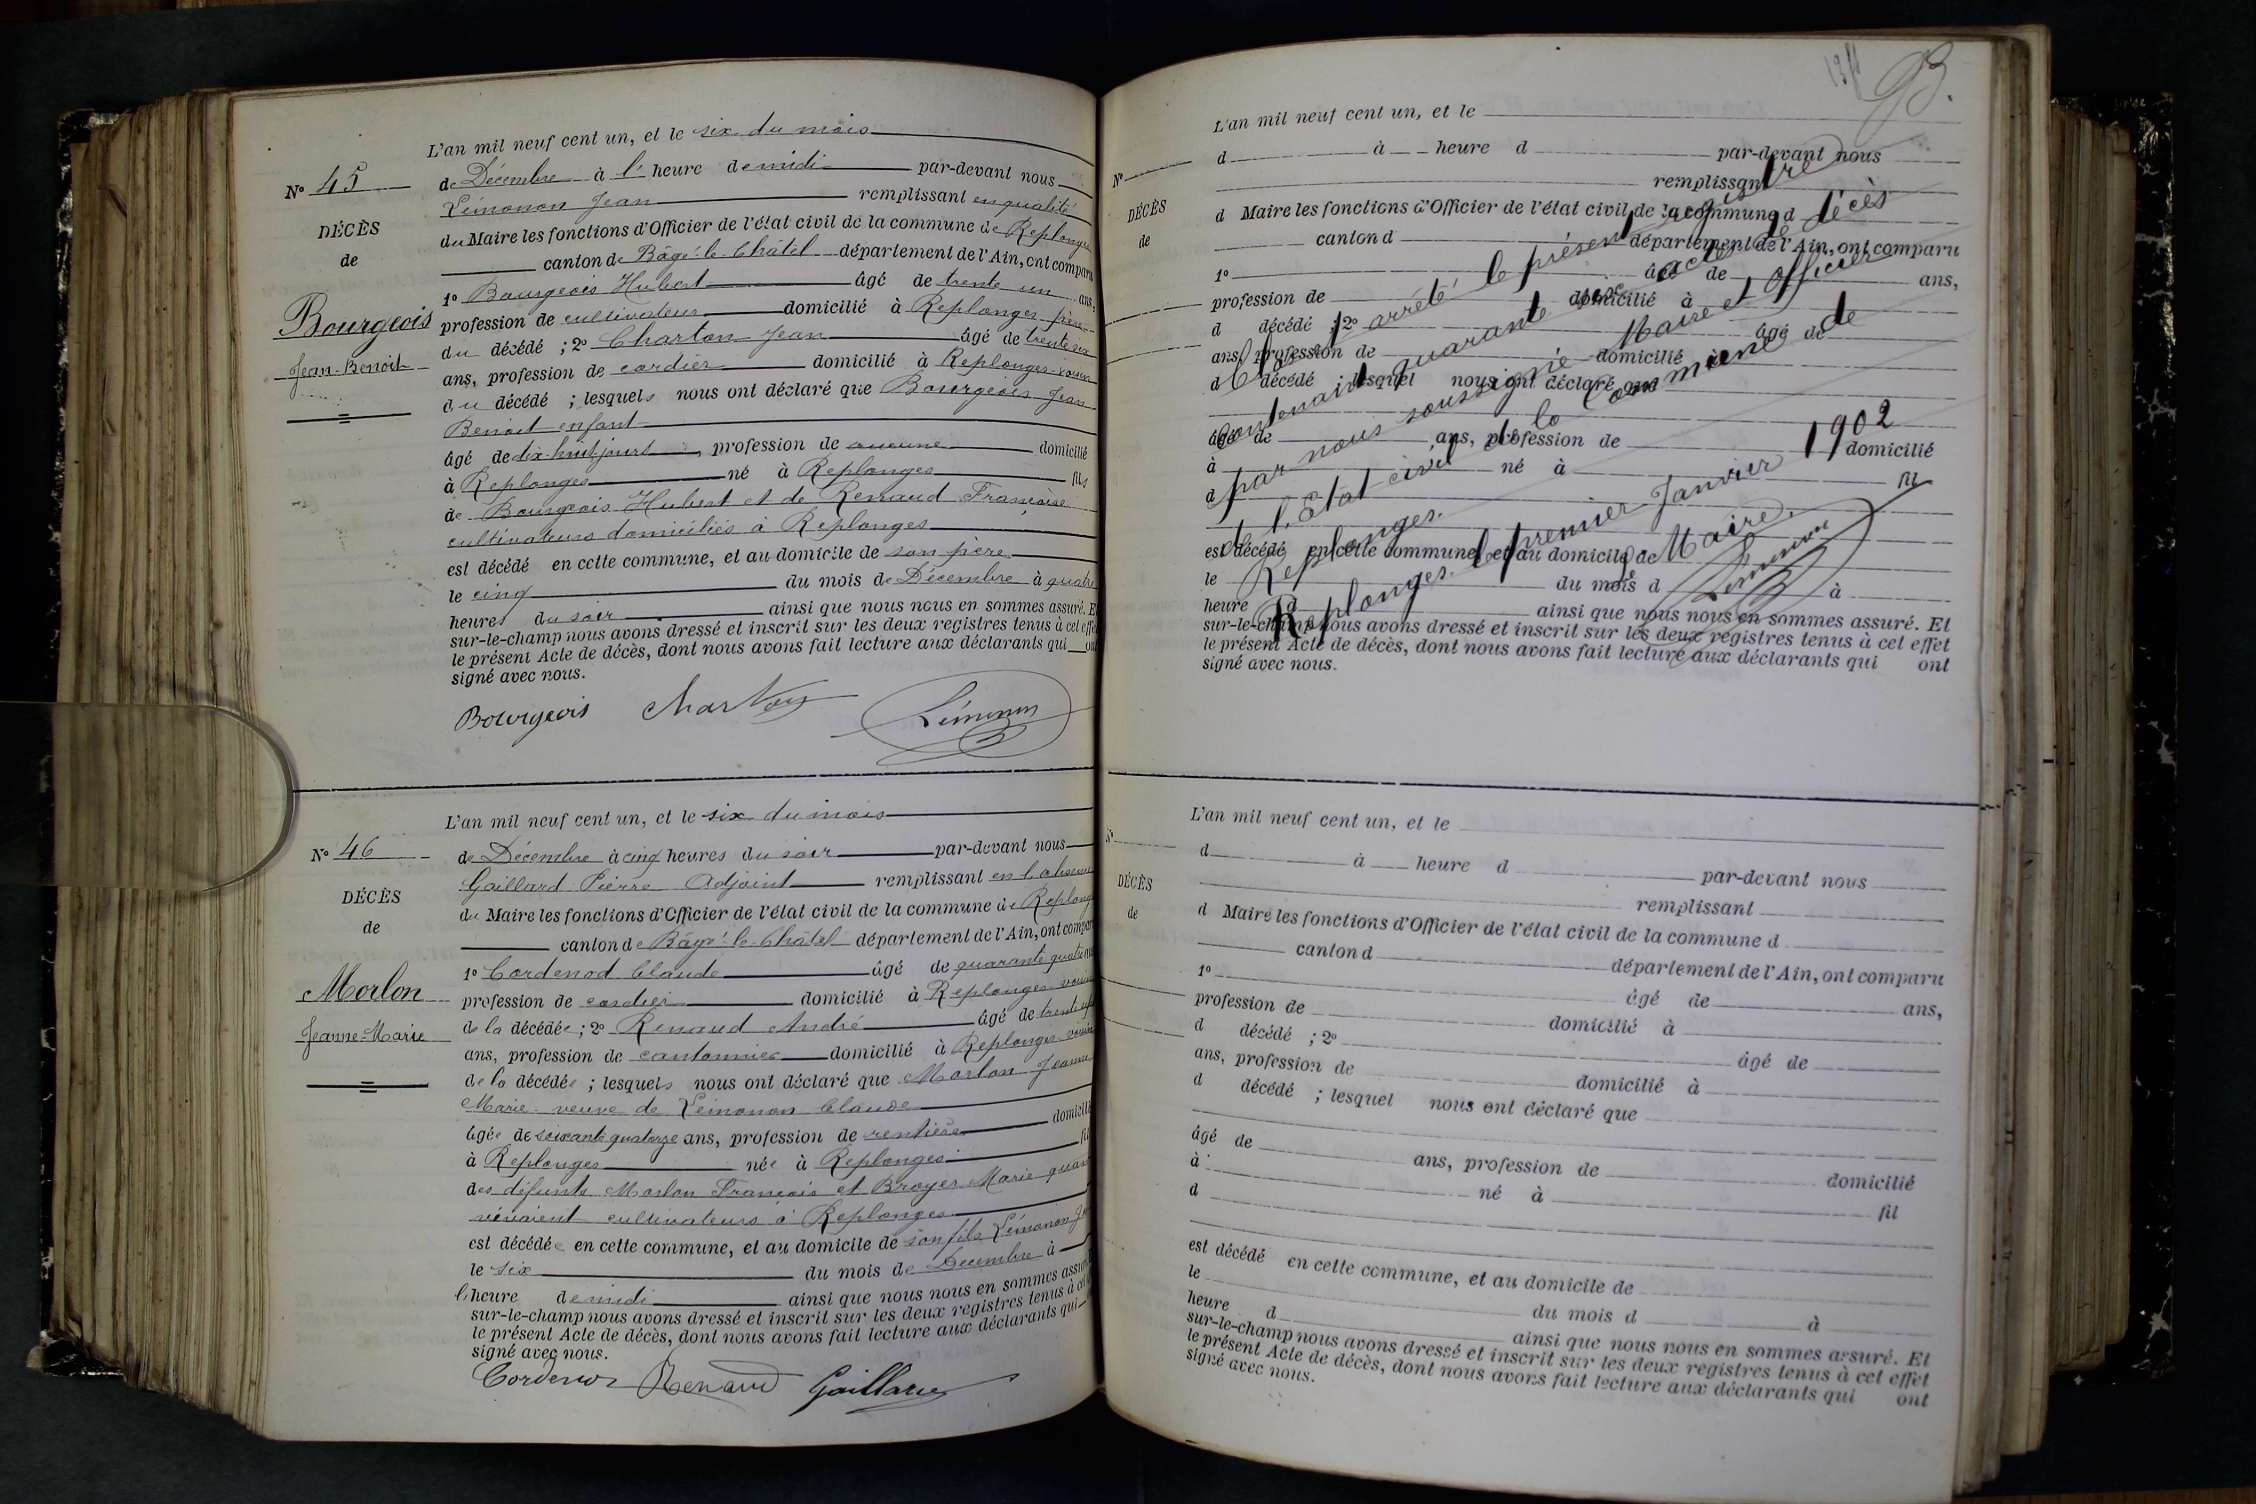 L'an mil neuf cent un, et le six du mois
N° 45
de Décembre à l' heure de midi par-devant nous
Lémonon Jean remplissant en qualité
DÉCÈS
du Maire les fonctions d'Officier de l'état civil de la commune de Replonges
de
canton de Bâgé-le-Châtel département de l'Ain, ont comparu
1° Bourgeois Hubert âgé de trente un ans,
Bourgeois
profession de cultivateur domicilié à Replonges père
Jean-Benoit
du décédé ; 2° Charton Jean âgé de trente six
ans, profession de cordier domicilié à Replonges voisin
du décédé ; lesquels nous ont déclaré que Bourgeois Jean
Benoit enfant
âgé de dix-huit jours, profession de aucune domicilié
à Replonges né à Replonges fils
de Bourgeois Hubert et de Renaud Françoise
cultivateurs domiciliés à Replonges
est décédé en cette commune, et au domicile de son père
le cinq du mois de Décembre à quatre
heures du soir ainsi que nous nous en sommes assuré. Et
sur-le-champ nous avons dressé et inscrit sur les deux registres tenus à cet effet
le présent Acte de décès, dont nous avons fait lecture aux déclarants qui ont
signé avec nous.
Bourgeois Charton Lémonon
L'an mil neuf cent un, et le six du mois
N° 46
de Décembre à cinq heures du soir par-devant nous
Gaillard Pierre Adjoint remplissant en l'absence
DÉCÈS
du Maire les fonctions d'Officier de l'état civil de la commune de Replonges
de
canton de Bâgé-le-Châtel département de l'Ain, ont comparu
1° Cordenod Claude âgé de quarante quatre
Morlon
profession de cordier domicilié à Replonges voisin
Jeanne-Marie
de la décédée ; 2° Renaud André âgé de trente
ans, profession de cantonnier domicilié à Replonges voisin
de la décédée ; lesquels nous ont déclaré que Morlon Jeanne
Marie veuve de Lémonon Claude
âgée de soixante quatorze ans, profession de rentière domicilié
à Replonges née à Replonges fil
des défunts Morlon François et Broyer Marie quand
vivaient cultivateurs à Replonges
est décédée en cette commune, et au domicile de son fils Lémonon
le six du mois de Décembre à
l'heure de midi ainsi que nous nous en sommes assuré
sur-le-champ nous avons dressé et inscrit sur les deux registres tenus à cet
le présent Acte de décès, dont nous avons fait lecture aux déclarants qui
signé avec nous.
Cordenod Renaud Gaillard
93.
L'an mil neuf cent un, et le
d à heure d par-devant nous
N°
remplissant
DÉCÈS
d Maire les fonctions d'Officier de l'état civil de la commune d
de
canton d département de l'Ain, ont comparu
1° âgé de ans,
profession de domicilié à
d décédé ; 2° âgé de
ans, profession de domicilié à
d décédé ; lesquel nous ont déclaré que
âgé de ans, profession de domicilié
à né à fil
d
est décédé en cette commune, et au domicile de
le du mois d à
heure d ainsi que nous nous en sommes assuré. Et
sur-le-champ nous avons dressé et inscrit sur les deux registres tenus à cet effet
le présent Acte de décès, dont nous avons fait lecture aux déclarants qui ont
signé avec nous.
Clos et arrêté le présent registre
contenant quarante six actes de décès
par nous soussigné Maire et Officier
de l'Etat civil de la Commune de
Replonges.
Replonges le premier Janvier 1902
Le Maire,
Lémonon
L'an mil neuf cent un, et le
N°
d à heure d par-devant nous
remplissant
DÉCÈS
d Maire les fonctions d'Officier de l'état civil de la commune d
de
canton d département de l'Ain, ont comparu
1° âgé de ans,
profession de domicilié à
d décédé ; 2° âgé de
ans, profession de domicilié à
d décédé ; lesquel nous ont déclaré que
âgé de ans, profession de domicilié
à né à fil
d
est décédé en cette commune, et au domicile de
le du mois d à
heure d ainsi que nous nous en sommes assuré. Et
sur-le-champ nous avons dressé et inscrit sur les deux registres tenus à cet effet
le présent Acte de décès, dont nous avons fait lecture aux déclarants qui ont
signé avec nous.